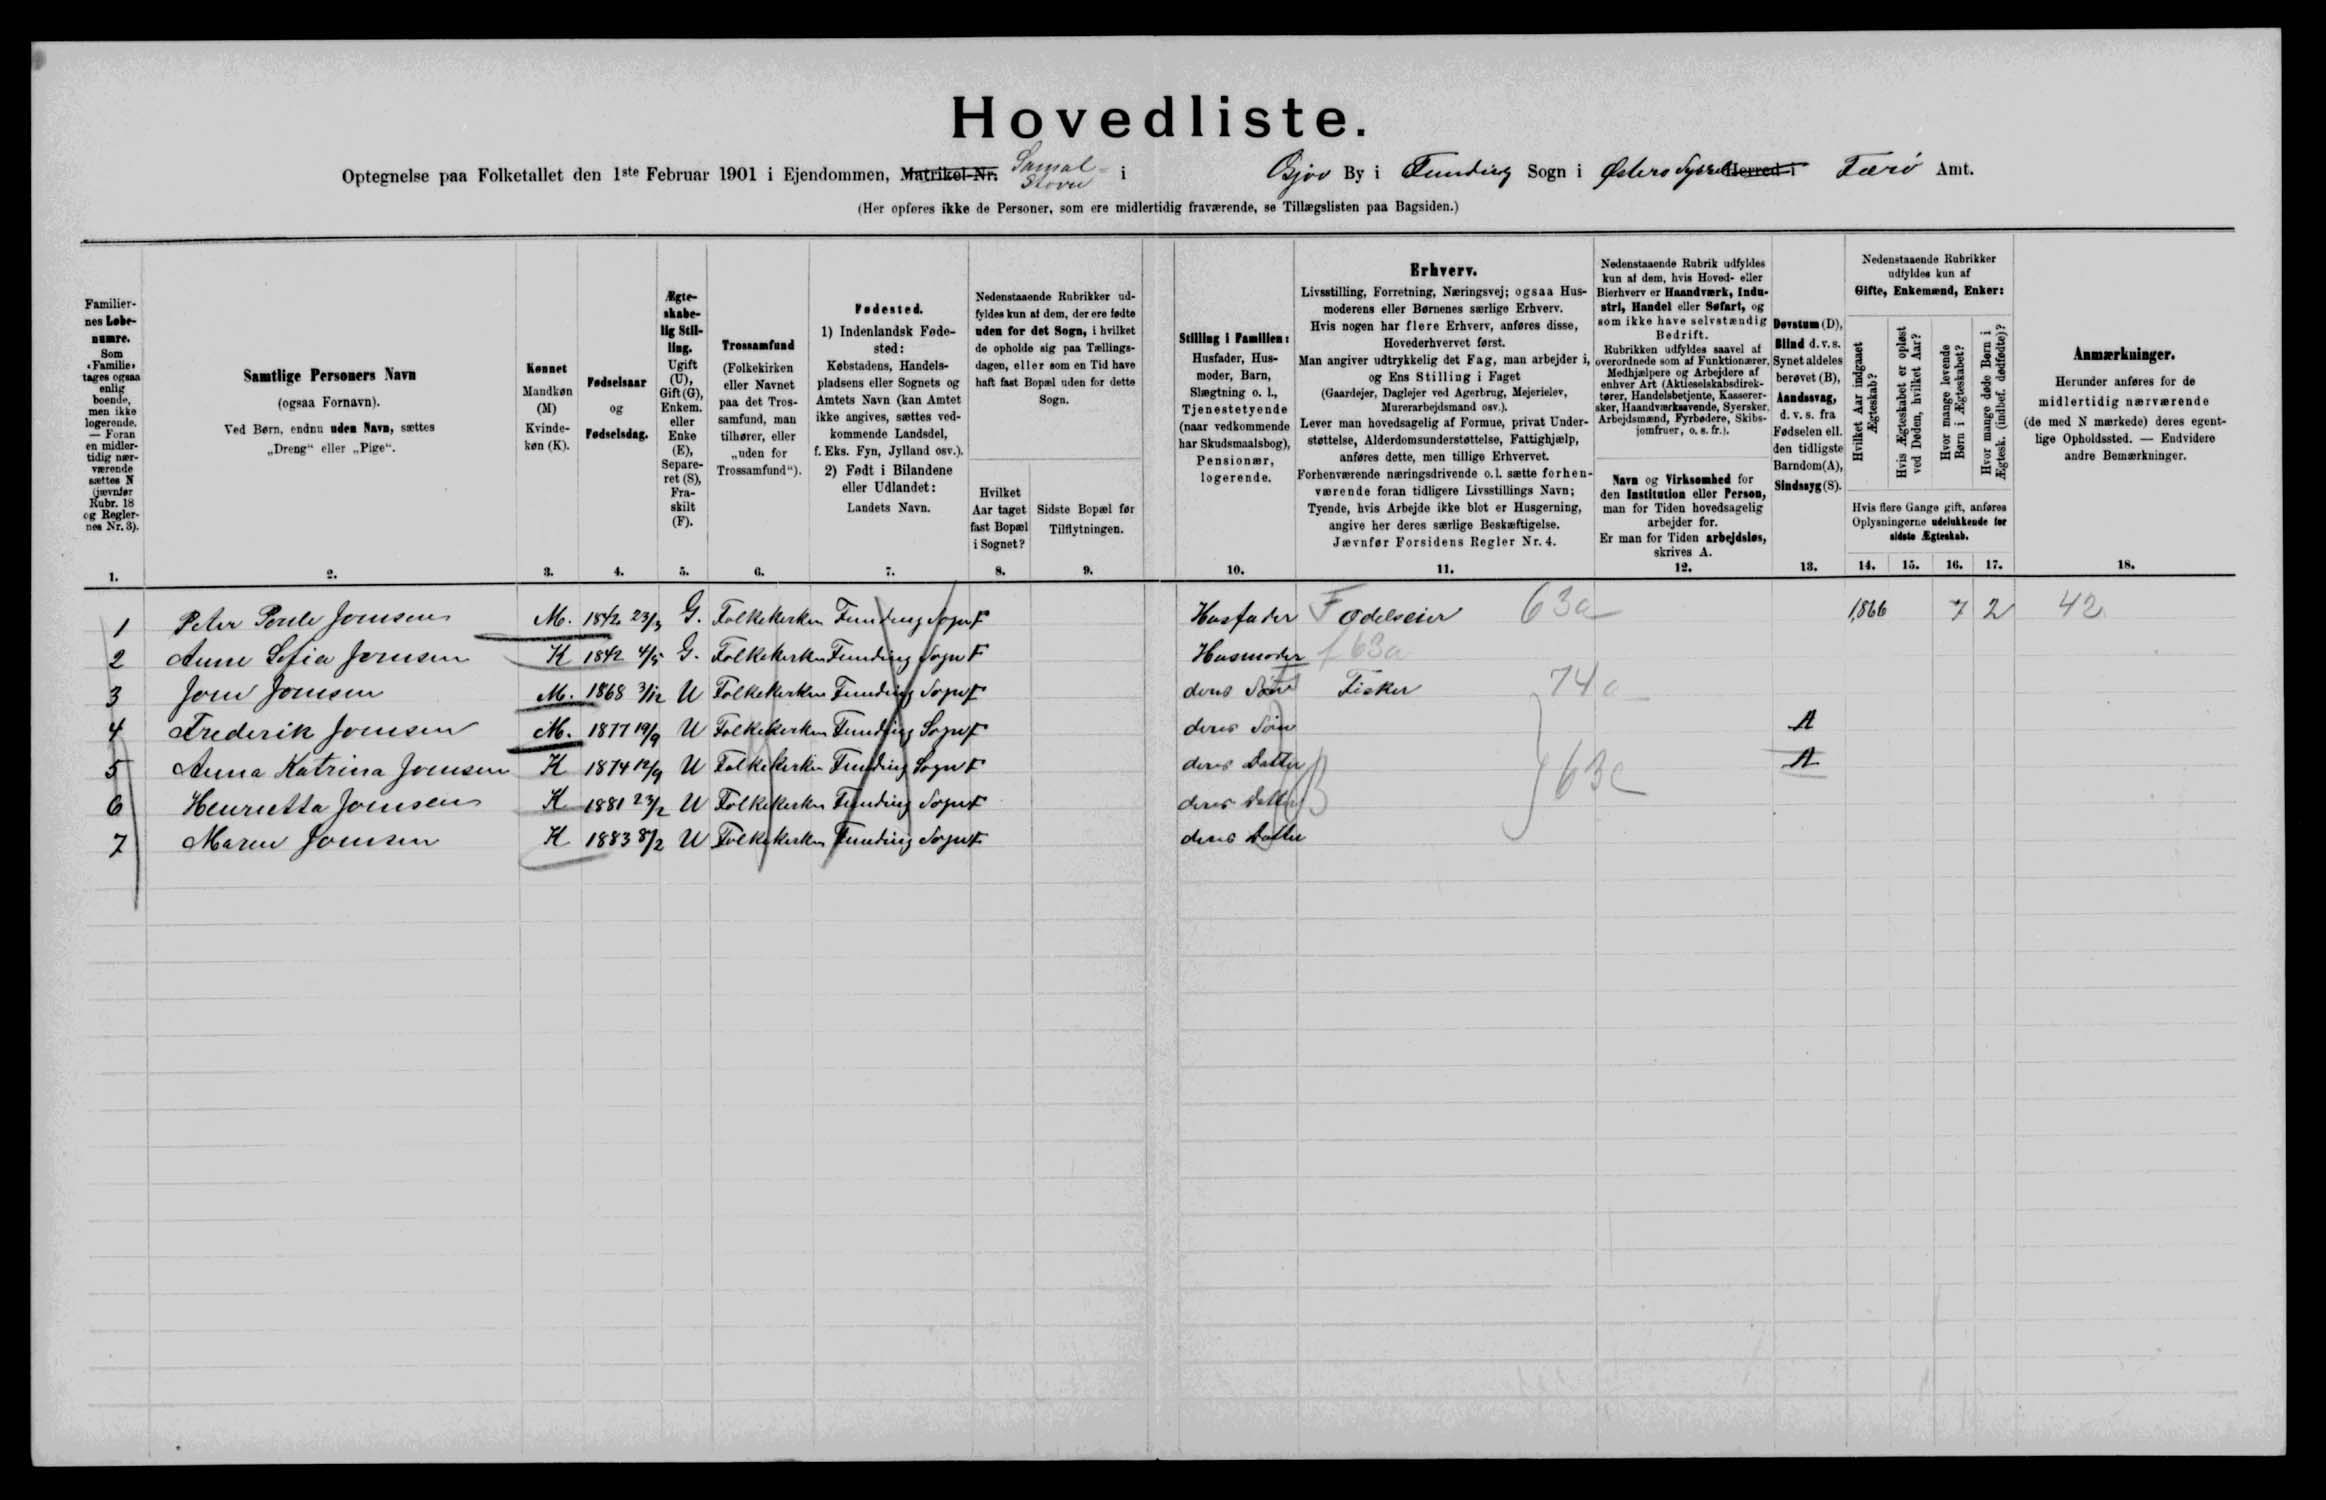 Hovedliste.
Optegnelse paa Folketallet den 1ste Februar 1901 i Ejendommen, Matrikel-Nr. Samal Stovu i Gjov By i Funding Sogn i Østerø Syssel Herred i Færø Amt.
(Her opføres ikke de Personer, som ere midlertidig fraværende, se Tillægslisten paa Bagsiden.)
Familiernes Løbenumre. Som «Familie» tages ogsaa enlig boende, men ikke logerende. — Foran en midlertidig nærværende sættes N (jævnfør Rubr. 18 og Reglernes Nr. 3).
Samtlige Personers Navn (ogsaa Fornavn). Ved Børn, endnu uden Navn, sættes „Dreng“ eller „Pige“.
Kønnet Mandkøn (M) Kvindekøn (K).
Fødselsaar og Fødselsdag.
Ægteskabelig Stilling. Ugift (U), Gift (G), Enkem. eller Enke (E), Separeret (S), Fraskilt (F).
Trossamfund (Folkekirken eller Navnet paa det Trossamfund, man tilhører, eller „uden for Trossamfund“).
Fødested. 1) Indenlandsk Fødested: Købstadens, Handelspladsens eller Sognets og Amtets Navn (kan Amtet ikke angives, sættes vedkommende Landsdel, f. Eks. Fyn, Jylland osv.). 2) Født i Bilandene eller Udlandet: Landets Navn.
Nedenstaaende Rubrikker udfyldes kun af dem, der ere fødte uden for det Sogn, i hvilket de opholde sig paa Tællingsdagen, eller som en Tid have haft fast Bopæl uden for dette Sogn.
Hvilket Aar taget fast Bopæl i Sognet?
Sidste Bopæl før Tilflytningen.
Stilling i Familien: Husfader, Husmoder, Barn, Slægtning o. l., Tjenestetyende (naar vedkommende har Skudsmaalsbog), Pensionær, logerende.
Erhverv. Livsstilling, Forretning, Næringsvej; ogsaa Husmoderens eller Børnenes særlige Erhverv.
Hvis nogen har flere Erhverv, anføres disse, Hovederhvervet først.
Man angiver udtrykkelig det Fag, man arbejder i, og Ens Stilling i Faget (Gaardejer, Daglejer ved Agerbrug, Mejerielev, Murerarbejdsmand osv.).
Lever man hovedsagelig af Formue, privat Understøttelse, Alderdomsunderstøttelse, Fattighjælp, anføres dette, men tillige Erhvervet.
Forhenværende næringsdrivende o. l. sætte forhenværende foran tidligere Livsstillings Navn; Tyende, hvis Arbejde ikke blot er Husgerning, angive her deres særlige Beskæftigelse.
Jævnfør Forsidens Regler Nr. 4.
Nedenstaaende Rubrik udfyldes kun af dem, hvis Hoved- eller Bierhverv er Haandværk, Industri, Handel eller Søfart, og som ikke have selvstændig Bedrift.
Rubrikken udfyldes saavel af overordnede som af Funktionærer, Medhjælpere og Arbejdere af enhver Art (Aktieselskabsdirektører, Handelsbetjente, Kasserersker, Haandværkssvende, Syersker, Arbejdsmænd, Fyrbødere, Skibsjomfruer, o. s. fr.).
Navn og Virksomhed for den Institution eller Person, man for Tiden hovedsagelig arbejder for.
Er man for Tiden arbejdsløs, skrives A.
Døvstum (D), Blind d. v. s. Synet aldeles berøvet (B), Aandssvag, d. v. s. fra Fødselen ell. den tidligste Barndom (A), Sindssyg (S).
Nedenstaaende Rubrikker udfyldes kun af Gifte, Enkemænd, Enker:
Hvilket Aar indgaaet Ægteskab?
Hvis Ægteskabet er opløst ved Døden, hvilket Aar?
Hvor mange levende Børn i Ægteskabet?
Hvor mange døde Børn i Ægtesk. (indbef. dødfødte)?
Hvis flere Gange gift, anføres Oplysningerne udelukkende for sidste Ægteskab.
Anmærkninger. Herunder anføres for de midlertidig nærværende (de med N mærkede) deres egentlige Opholdssted. — Endvidere andre Bemærkninger.
1. 2. 3. 4. 5. 6. 7. 8. 9. 10. 11. 12. 13. 14. 15. 16. 17. 18.
1 Peter Poule Joensen M. 1842 23/3 G. Folkekirken Funding Sogn F Husfader F Odelseier 63a 1866 7 2 42
2 Anne Sofia Joensen K 1842 4/5 G. Folkekirken Funding Sogn F Husmoder f 63a
3 Joen Joensen M. 1868 3/12 U Folkekirken Funding Sogn F deres Søn Fisker 74a
4 Frederik Joensen M. 1877 19/9 U Folkekirken Funding Sogn F deres Søn A
5 Anna Katrina Joensen K 1874 12/9 U Folkekirken Funding Sogn F deres Datter 63c A
6 Henrietta Joensen K 1881 23/2 U Folkekirken Funding Sogn F deres Datter
7 Maren Joensen K 1883 8/2 U Folkekirken Funding Sogn F deres Datter